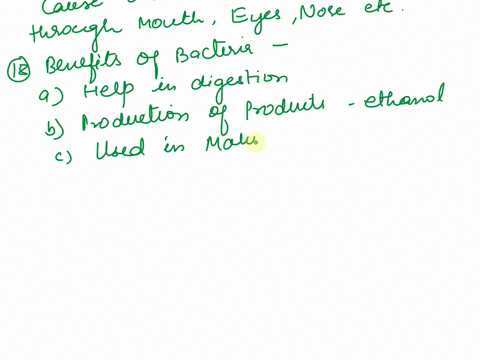 Cause
through Mouth, Eyes, Nose etc.
18 Benefits of Bacteria -
a) Help in digestion
b) Production of Products - ethanol
c) Used in Mak